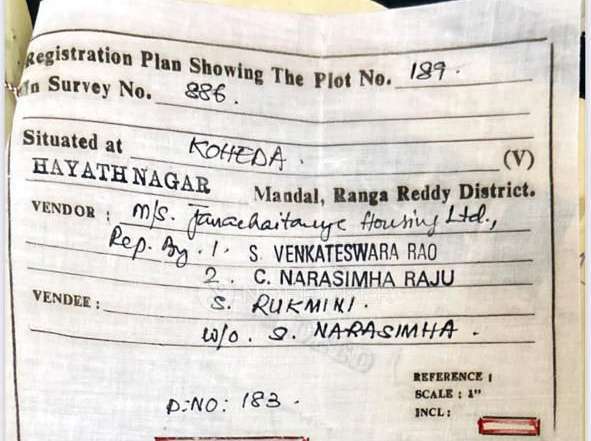 Registration Plan Showing The Plot No. 189.
In Survey No. 886.
Situated at KOHEDA. (V)
HAYATHNAGAR Mandal, Ranga Reddy District.
VENDOR : M/s. Janachaitanya Housing Ltd.,
Rep. By. 1. S. VENKATESWARA RAO
2. C. NARASIMHA RAJU
VENDEE : S. RUKMINI.
W/o. S. NARASIMHA.
REFERENCE :
SCALE : 1"
D.NO: 183.
INCL :